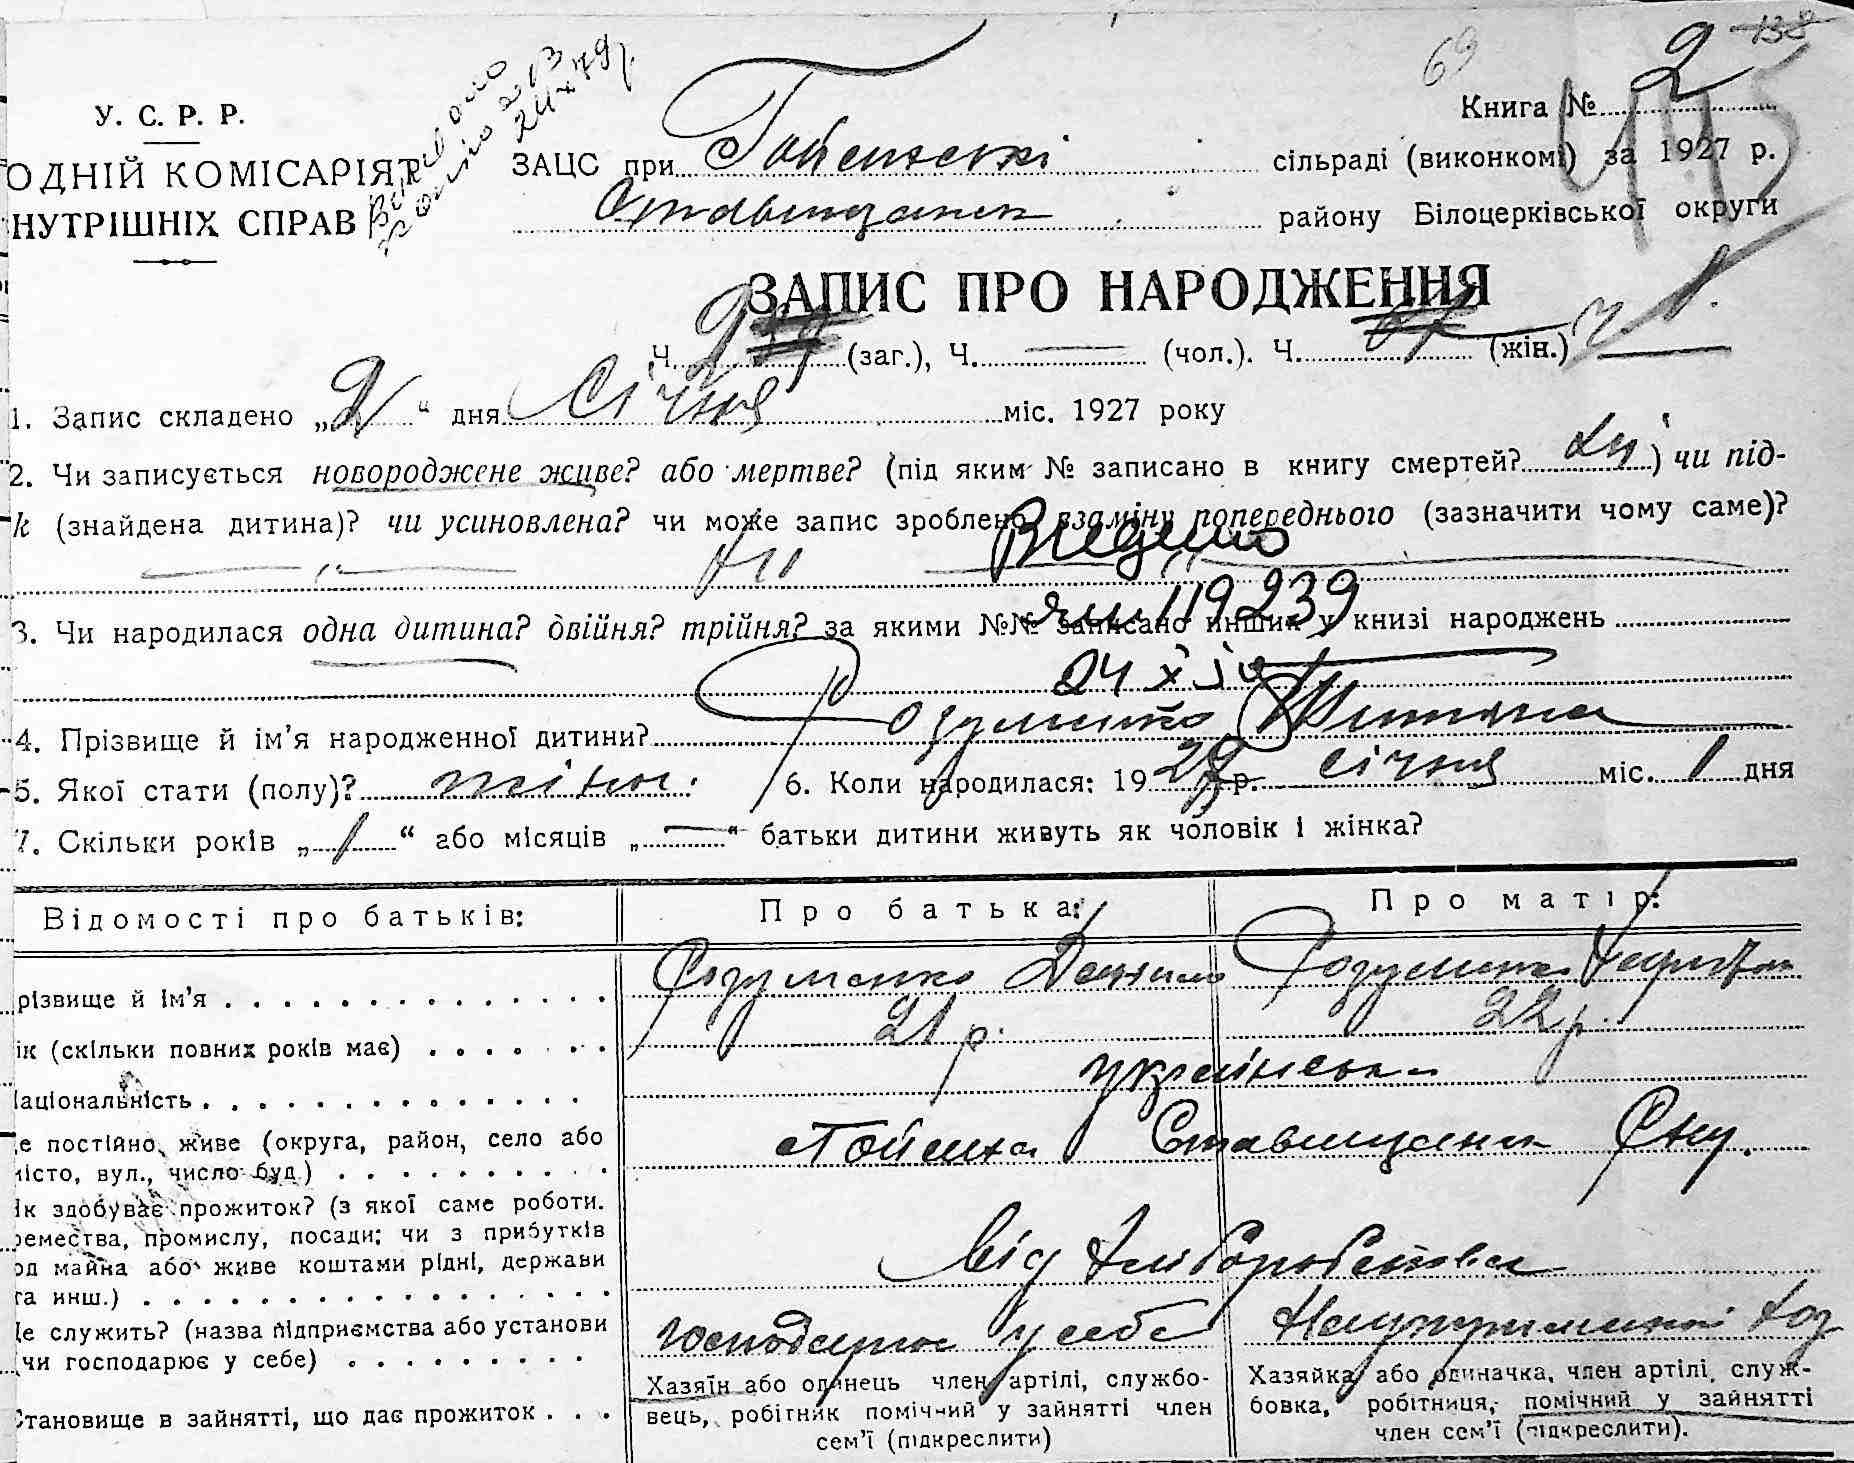 69
138
У. С. Р. Р.
Книга № 2
ОДНІЙ КОМІСАРІЯТ
ЗАЦС при Гойенські сільраді (виконкомі) за 1927 р.
НУТРІШНІХ СПРАВ
Ставищанск району Білоцерківської округи
ЗАПИС ПРО НАРОДЖЕННЯ
Ч. 2 (заг.), Ч. — (чол.). Ч. (жін.)
1. Запис складено „2" дня Січня міс. 1927 року
2. Чи записується новороджене живе? або мертве? (під яким № записано в книгу смертей? ) чи під-
k (знайдена дитина)? чи усиновлена? чи може запис зроблено взаміну попереднього (зазначити чому саме)?
Видано
119239
3. Чи народилася одна дитина? двійня? трійня? за якими №№ записано инших у книзі народжень
24 X
4. Прізвище й ім'я народженної дитини? Розуменко
5. Якої стати (полу)? жіноч. 6. Коли народилася: 1927 р. січня міс. 1 дня
7. Скільки років „1" або місяців „—" батьки дитини живуть як чоловік і жінка?
Відомості про батьків: Про батька: Про матір:
різвище й ім'я Розуменко Данило Розуменко
ік (скільки повних років має) 21 р. 22 р.
аціональність українська
е постійно живе (округа, район, село або
місто, вул., число буд.) Гойенка Ставищанск
Як здобуває прожиток? (з якої саме роботи.
ремества, промислу, посади; чи з прибутків
од майна або живе коштами рідні, держави
та инш.) Від хліборобства
Де служить? (назва підприємства або установи
чи господарює у себе) господарює у себе
Становище в зайнятті, що дає прожиток
Хазяїн або одинець член артілі, службо-
вець, робітник помічний у зайнятті член
сем'ї (підкреслити)
Хазяйка або одиначка, член артілі, служ-
бовка, робітниця, помічний у зайнятті
член сем'ї (підкреслити).